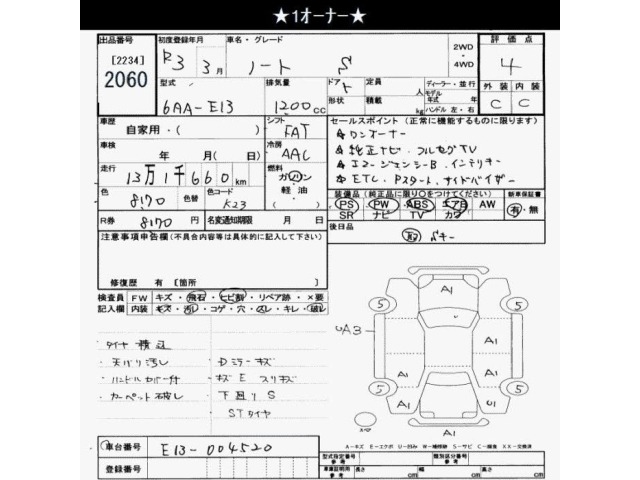 ★1オーナー★
出品番号 初度登録年月 車名・グレード 2WD・4WD 評価点
[2234] 2060 R3 3月 ノート S 4
型式 排気量 ドア 定員 ディーラー・並行 外装 内装
形状 積載 kg モデル年式 年 ハンドル 左・右
6AA-E13 1200cc C C
車歴 シフト セールスポイント (正常に機能するものに限ります)
自家用・( ) FAT
★ワンオーナー
車検 冷房
年 月( 日) AAC
★純正ナビ・フルセグTV
走行 燃料
13万1千660km ガソリン 軽油
★エマージェンシーB、インテリキー
ETC、Pスタート、サイドバイザー
色 色替 色コード
8170 K23
装備品 (純正品に限り○をつけてください) 新車保証書
PS PW ABS エアB AW 有・無
SR ナビ TV カワ
R券 8170 名変通知期限 月 日
後日品
注意事項申告欄(不具合内容等は具体的に記入して下さい)
取 キー
修復歴 有 [箇所 ]
検査員記入欄 FW キズ・飛石・ヒビ割・リペア跡・×要
内装 キズ・汚れ・コゲ・穴・スレ・キレ・破れ
タイヤ積込
・天バリ汚レ ・Dミラーキズ
・ハンドルカバー付 ・キズE スリキズ
・カーペット破レ ・下廻りS
・STタイヤ
A1
5 5
UA3 A1
A1 A1
5 5
A1 U1
スペア
A1
A-キズ E-エクボ U-凹み W-補修跡 S-サビ C-腐食 XX-交換済
車台番号 E13-004520
登録番号
型式指定番号 参考 類別区分番号 参考
車庫証明用 参考 長さ cm 幅 cm 高さ cm